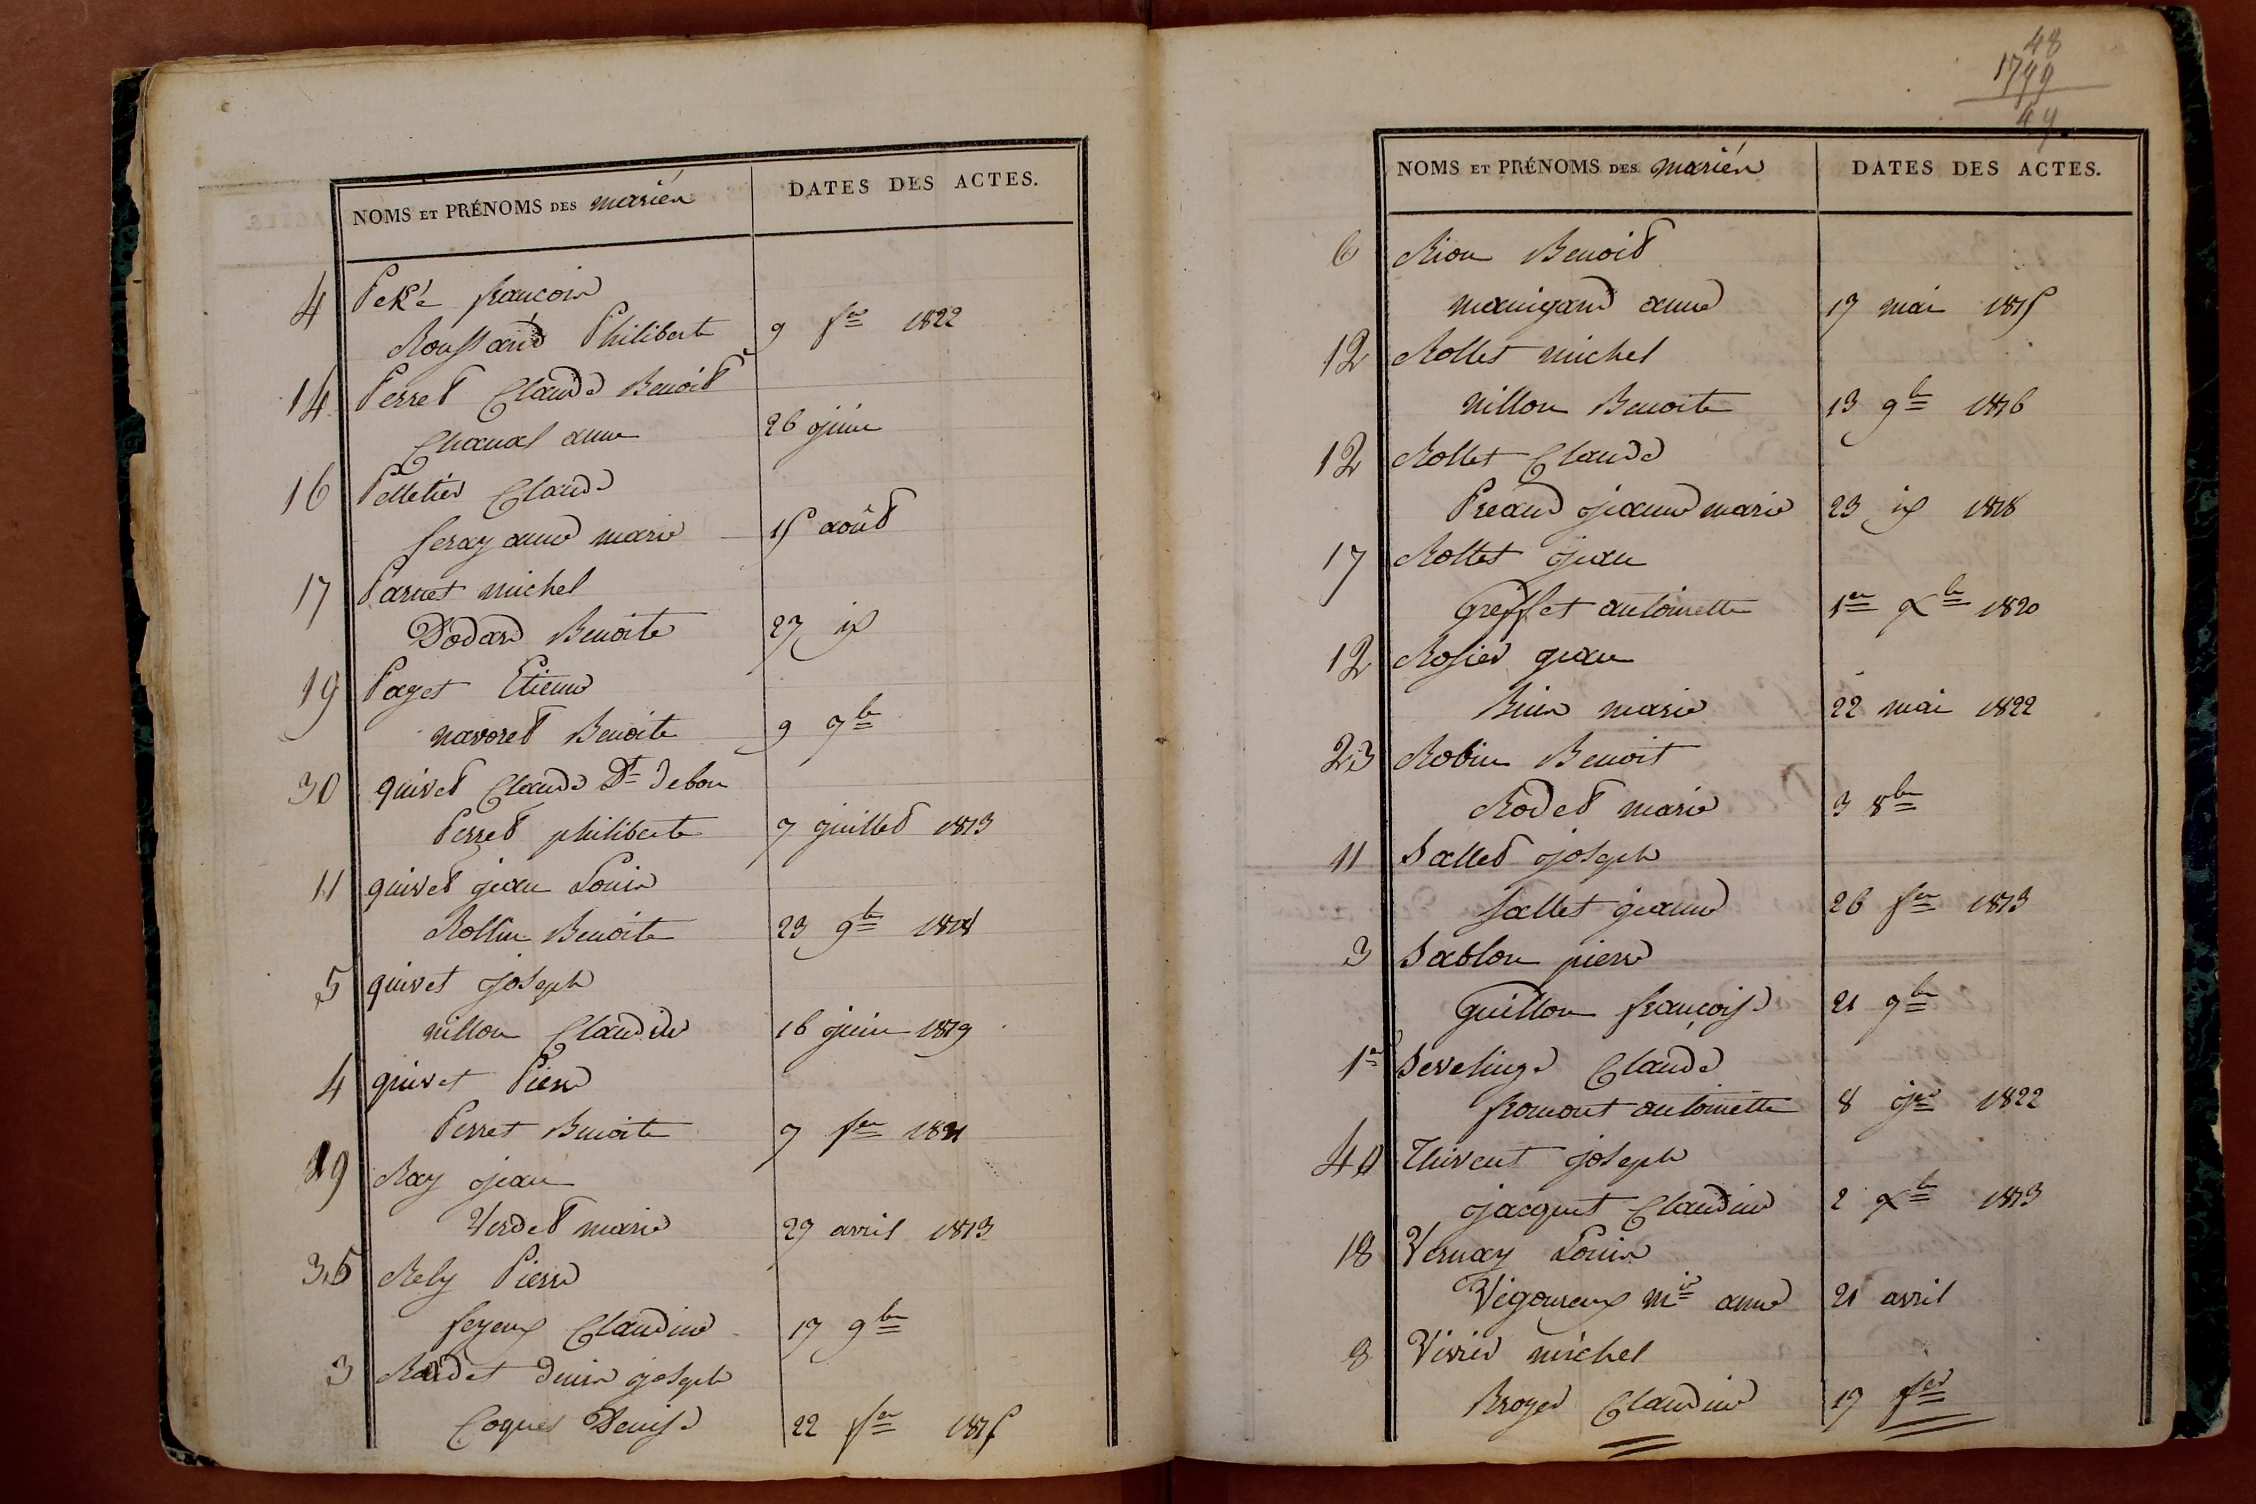 NOMS ET PRÉNOMS DES mariés
DATES DES ACTES.
4 françois
Roussard Philiberte 9 fer 1822
14 Perret Claude Benoit
Chanal anne 26 juin
16 Pelletier Claude
feray anne marie 15 août
17 Parnet michel
Dodard Benoite 27 id
19 Paget Etienne
navoret Benoite 9 7bre
30 quivet Claude Dt debon
Perret philiberte 7 juillet 1813
11 quivet jean Louis
Rollin Benoite 23 9bre
5 quivet joseph
nillon Claudine 16 juin 1819
4 quivet Pierre
Perret Benoite 7 fer 1821
19 Ray jean
Verdet marie 29 avril 1813
35 Rely Pierre
feyeux Claudine 17 9bre
3 denis joseph
Denise 22 fer 1815
48
1749
49
NOMS ET PRÉNOMS DES mariés
DATES DES ACTES.
6 Rion Benoit
manigand anne 17 mai 1815
12 Rollet michel
nillon Benoite 13 9bre 1816
12 Rollet Claude
Préaud jeanne marie 23 id 1818
17 Rollet jean
Greffet antoinette 1er Xbre 1820
12 Rosier jean
marie 22 mai 1822
23 Robin Benoit
Rodet marie 3 8bre
11 Sallet joseph
Sallet jeanne 26 fer 1813
3 Sablon pierre
Guillon françoise 21 9bre
1er Sevelinge Claude
fromont antoinette 8 jer 1822
40 Thivent joseph
jacquet Claudine 2 Xbre 1813
18 Vernay Louis
Vigoureux mie anne 21 avril
8 Vivier michel
Broyer Claudine 19 fer